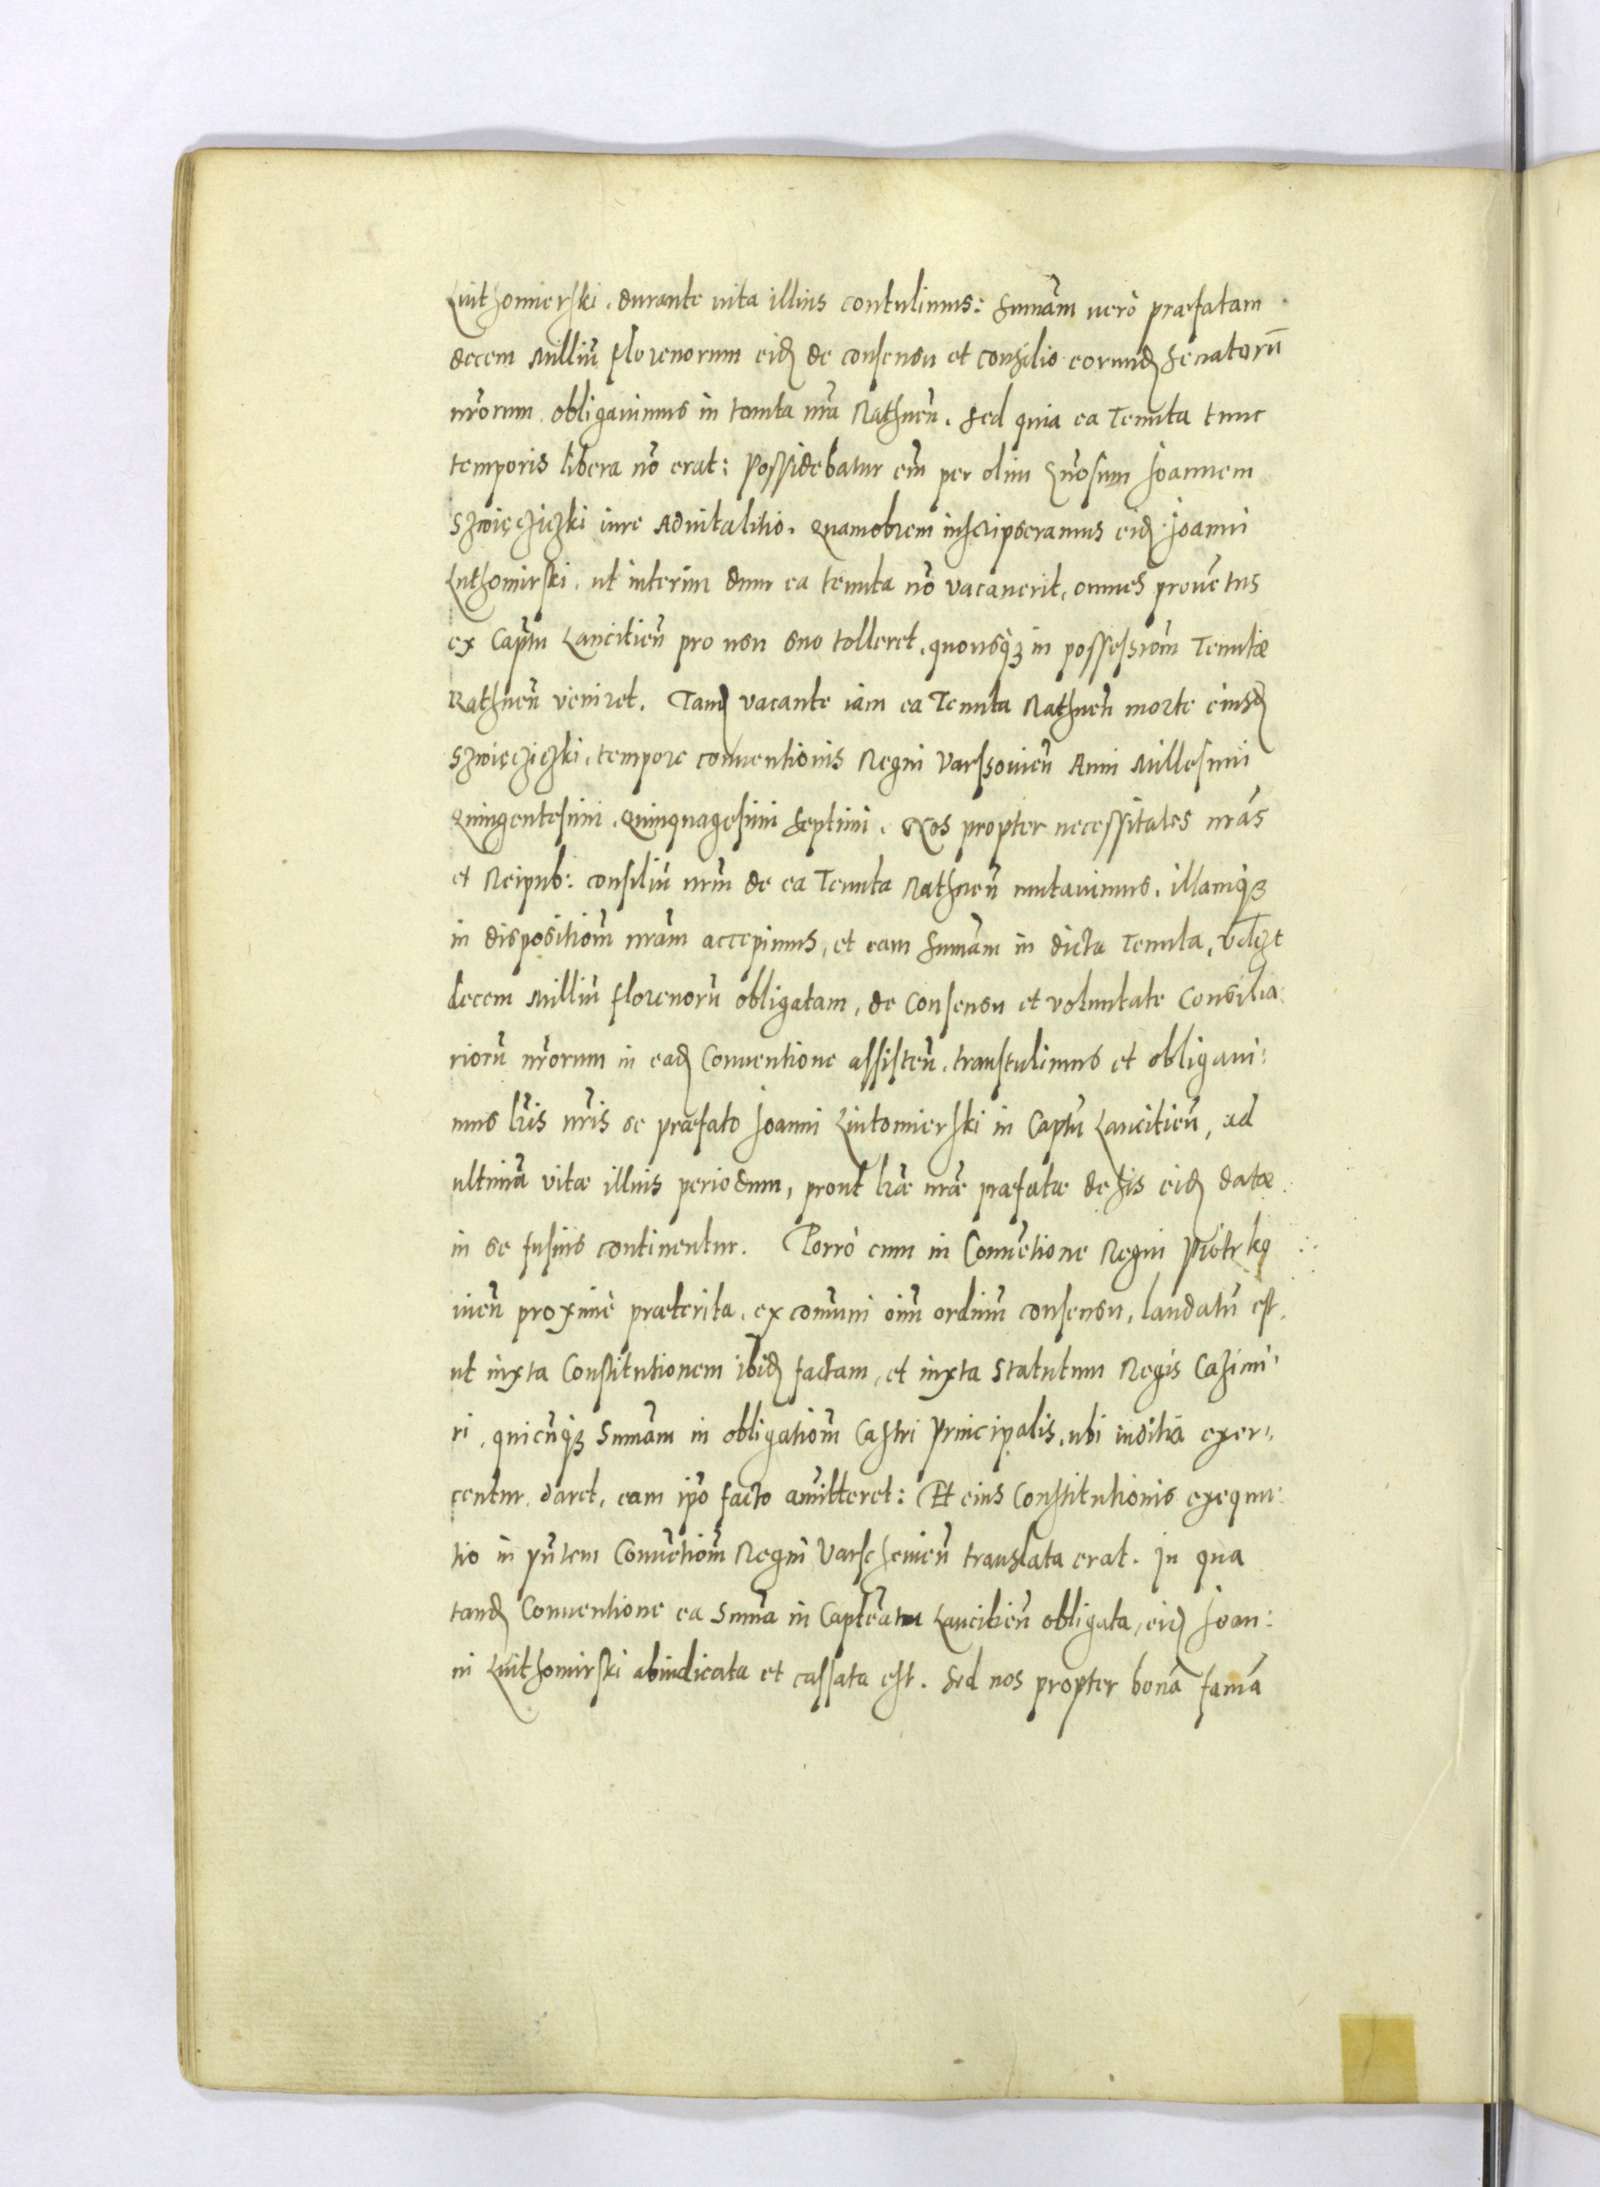 Luthomierski, durante vita illius contulimus: Summam̃ verò praefatam
decem Milliũ florenorum eid̃ de consensu et consilio eorund̃ Senatorũ
nrõrum obligavimus in tenuta nrã Rathneñ. Sed quia ea Tenuta tunc
temporis libera nõ erat: Possidebatur em̃ per olim Gnõsum Joannem
Szwięczickzki iure Advitalitio. Quamobrem inscripseramus eid̃ Joanni
Luthomirski, ut interim dum ea tenuta nõ vacaverit, omnes provẽtus
ex Captũ Lancicieñ pro usu suo tolleret, quousq̃ in possessiom̃ Tenutae
Rathneñ veniret. Tand̃ vacante iam ea Tenuta Rathneñ morte eiusd̃
Szwięcziczki, tempore conventionis Regni Varssovieñ Anni Millesimi
Quingentesimi, Quinquagesimi Septimi. Nos propter necessitates nrãs
et Reipub: consiliũ nrm̃ de ea Tenuta Rathneñ mutavimus, illamq̃
in dispositiom̃ nrãm accepimus, et eam sum̃am in dicta Tenuta,
decem Milliũ florenorũ obligatam, de Consensu et voluntate Consilia:
riorũ nrõrum in ead̃ Conventione assisteñ, transtulimus et obligavi:
mus lrĩs nrĩs se praefato Joanni Lutomierski in Captũ Lancicieñ, ad
ultimã vitae illius periodum, prout lrãe nrãe praefatae desis eid̃ datae
in se fusius continentur. Porrò cum in Convẽtione Regni Piotrko
vieñ proximè praeterita, ex com̃uni oim̃ ordinũ consensu, laudatũ est,
ut iuxta Constitutionem ibid̃ factam, et iuxta Statutum Regis Cazimi:
ri, quicũq̃ Sum̃am in obligatiom̃ Castri Principalis, ubi iuditia exer:
centur, daret, eam ipõ facto amitteret: Et eius Constitutionis exequu:
tio in pñtem Convẽtiom̃ Regni Varschevieñ translata erat. In qua
tand̃ Conventione ea Sum̃a in Captẽatu Lancicieñ obligata, eid̃ Joan:
ni Luthomirski abiudicata et cassata est. Sed nos propter bonã famã